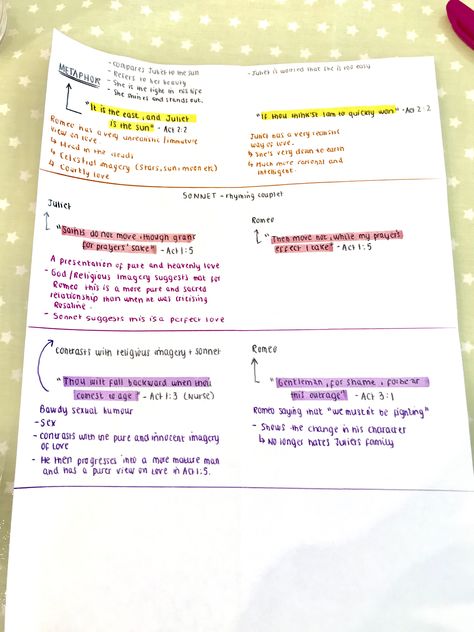 METAPHOR
- compares Juliet to the sun
- Refers to her beauty
- She is the light in his life
- She shines and stands out.
"It is the east, and Juliet
is the sun" - Act 2:2
Romeo has a very unrealistic / immature
view on love
↳ Head in the clouds
↳ Celestial imagery (stars, sun, moon etc)
↳ Courtly love
- Juliet is worried that she is too easy
"If thou thinkst I am to quickly won" - Act 2:2
Juliet has a very realistic
way of love.
↳ She's very down to earth
↳ Much more rational and
intelligent.
SONNET - rhyming couplet
Juliet
"Saints do not move, though grant
for prayers' sake" - Act 1:5
A presentation of pure and heavenly love
- God / Religious imagery suggests that for
Romeo this is a more pure and sacred
relationship than when he was
Rosaline.
- Sonnet suggests this is a perfect love
Romeo
"Then move not, while my prayer's
effect I take" - Act 1:5
contrasts with religious imagery + sonnet
"Thou wilt fall backward when thou
comest to age" - Act 1:3 (Nurse)
Bawdy sexual humour
- Sex
- contrasts with the pure and innocent imagery
of love
- He then progresses into a more mature man
and has a purer view on love in Act 1:5.
Romeo
"Gentleman, for shame, forbear
this outrage" - Act 3:1
Romeo saying that "we mustn't be fighting"
- Shows the change in his character
↳ No longer hates Juliet's family